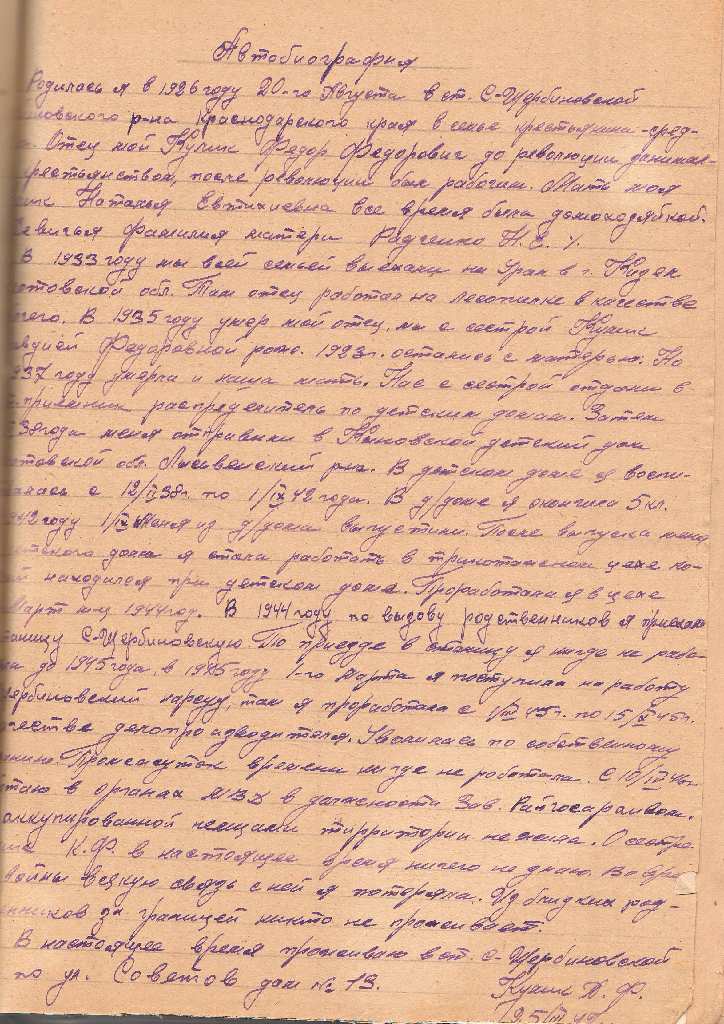 Автобиография
Родилась я в 1926 году 20-го Августа в ст. С-Щербиновской
новского р-на Краснодарского края в семье крестьянина-серед-
Отец мой Кулик Федор Федорович до революции занимал-
крестьянством, после революции был рабочим. Мать моя
лик Наталья Евтихиевна все время была домохозяйкой.
девичья фамилия матери Радченко Н. Е.
В 1933 году мы всей семьей выехали на Урал в г. Кизел
лотовской обл. Там отец работал на лесопилке в качестве
бочего. В 1935 году умер мой отец, мы с сестрой Кулик
Федоровной рожд. 1923 г. остались с матерью. Но
937 году умерла и наша мать. Нас с сестрой отдали в
приемник распределитель по детским домам. Затем
38 года меня отправили в детский дом
лотовской обл. Лысьвенский р-н. В детском доме я воспи-
талась с 12/II 38 г. по 1/IX 42 года. В д/доме я окончила 5 кл.
1942 году 1/IX меня из д/дома выпустили. После выпуска меня
детского дома я стала работать в трикотажном цехе ко-
рый находился при детском доме. Проработала я в цехе
Март м-ц 1944 год. В 1944 году по вызову родственников я приехала
станицу С-Щербиновскую. По приезде в станицу я нигде не рабо-
ла до 1945 года, в 1945 году 1-го Марта я поступила на работу
Щербиновский нарсуд, там я проработала с 1/III 45 г. по 15/ 45 г.
качестве делопроизводителя. Уволилась по собственному
ланию. Промежуток времени нигде не работала. С 10/IV 46 г.
ботаю в органах МВД в должности Зав. Райгосархивом.
оккупированной немцами тирритории не жила. О сестре
лик К. Ф. в настоящее время ничего не знаю. Во вре-
войны всякую связь с ней я потеряла. Из близких род-
венников за границей никто не проживает.
В настоящее время проживаю в ст. С-Щербиновской
по ул. Советов дом № 13.
Кулик Ф.